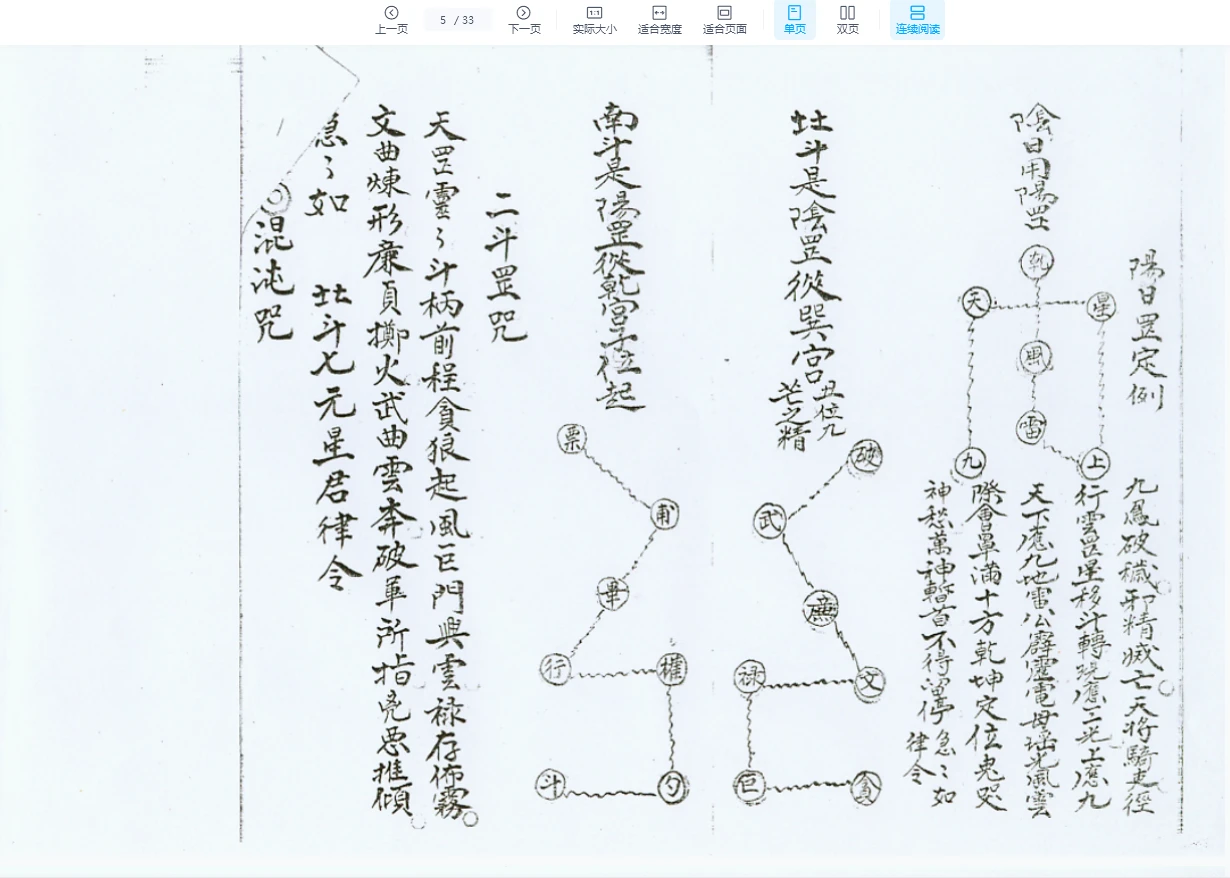 上一页
5 / 33
下一页
1:1
实际大小
适合宽度
适合页面
单页
双页
连续阅读
陽日罡定例
陰日用陽罡
乾
天
星
風
雷
九
上
九鳳破穢邪精滅亡天将騎吏徑
行雲罡星移斗轉晓應三光上應九
天下應九地雷公霹靂電母瑶光風雲
際會罩滿十方乾坤定位鬼哭
神愁萬神暫首不得留停急〻如
律令
北斗是陰罡從巽宮
丑位九
芒之精
破
武
廉
文
禄
巨
貪
南斗是陽罡從乾宮子位起
票
甫
畢
行
權
斗
勺
二斗罡咒
天罡靈〻斗柄前程貪狼起風巨門興雲禄存佈霧
文曲煉形廉貞擲火武曲雲奔破軍所指兇悪推傾
急〻如 北斗七元星君律令
混沌咒